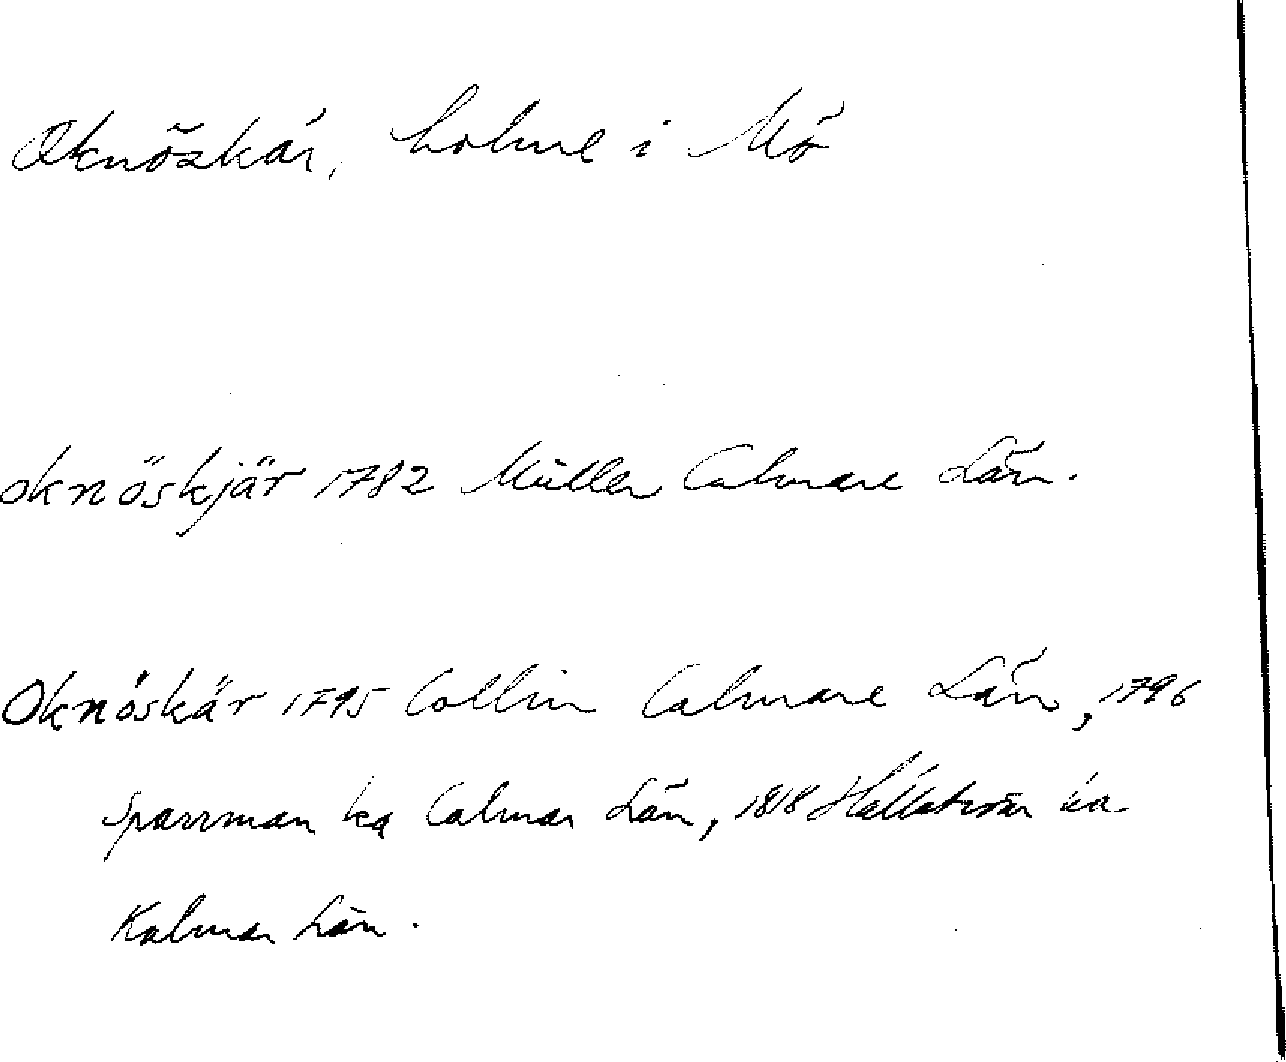 Oknöskär, holme i Mö
oknöskjär 1782 Müller Calmare Län.
Oknöskär 1795 Collin Calmare Län, 1796
Sparrman ka Calmar Län, 1818 Hällström ka
Kalmar Län.